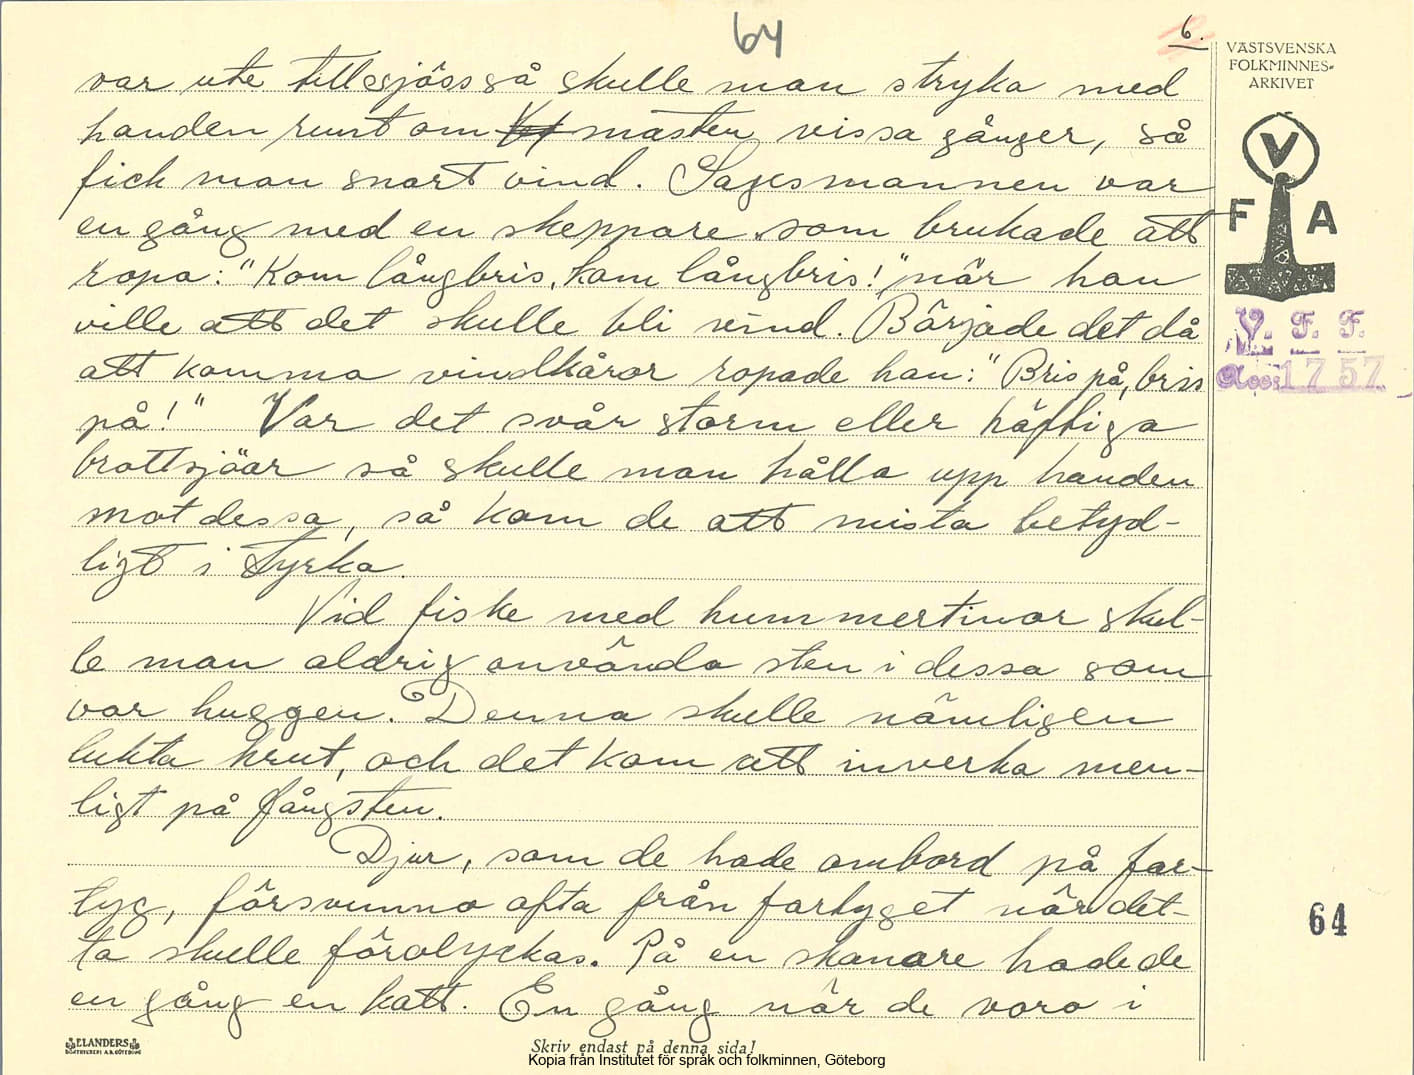 64
6.
VÄSTSVENSKA
FOLKMINNES-
ARKIVET
V
F A
V. F. F.
Acc: 1757
var ute till sjöss så skulle man stryka med
handen runt om masten vissa gånger, så
fick man snart vind. Sagesmannen var
en gång med en skeppare som brukade att
ropa: "Kom långbris, kom långbris!" när han
ville att det skulle bli vind. Började det då
att komma vindkåror ropade han: "Bris på, bris
på!" Var det svår storm eller häftiga
brottsjöar så skulle man hålla upp handen
mot dessa, så kom de att mista betyd-
ligt i styrka.
Vid fiske med hummertinor skul-
le man aldrig använda sten i dessa som
var huggen. Denna skulle nämligen
lukta krut, och det kom att inverka men-
ligt på fångsten.
Djur, som de hade ombord på far-
tyg, försvunno ofta från fartyget när det-
ta skulle förolyckas. På en skonare hade de
en gång en katt. En gång när de voro i
64
ELANDERS
BOKTRYCKERI A.B. GÖTEBORG
Skriv endast på denna sida!
Kopia från Institutet för språk och folkminnen, Göteborg